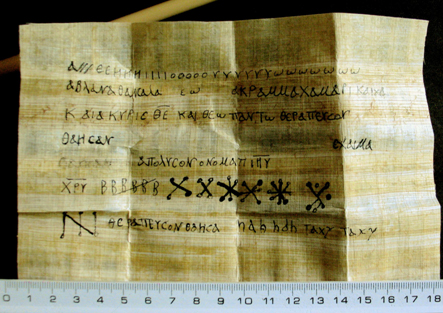 αεεηηηιιιιοοοοουυυυυυωωωωωωω
αβλαναθαναλα εω ακραμμαχαμαρι καιχα
Κ αια κυριε θε και θεω παντω θεραπευσον
θαησαν
απολυσον ονομα πιπι
ββββββ
θεραπευσον θαησα ηδη ηδη ταχυ ταχυ
0 1 2 3 4 5 6 7 8 9 10 11 12 13 14 15 16 17 18